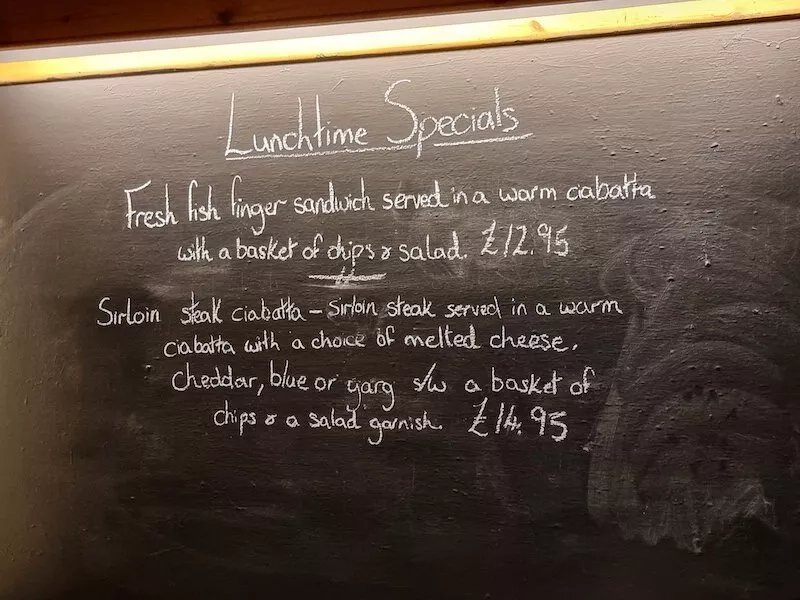 Lunchtime Specials
Fresh fish finger sandwich served in a warm ciabatta
with a basket of chips & salad. £12.95
Sirloin steak ciabatta – Sirloin steak served in a warm
ciabatta with a choice of melted cheese,
cheddar, blue or garg s/w a basket of
chips & a salad garnish. £14.95